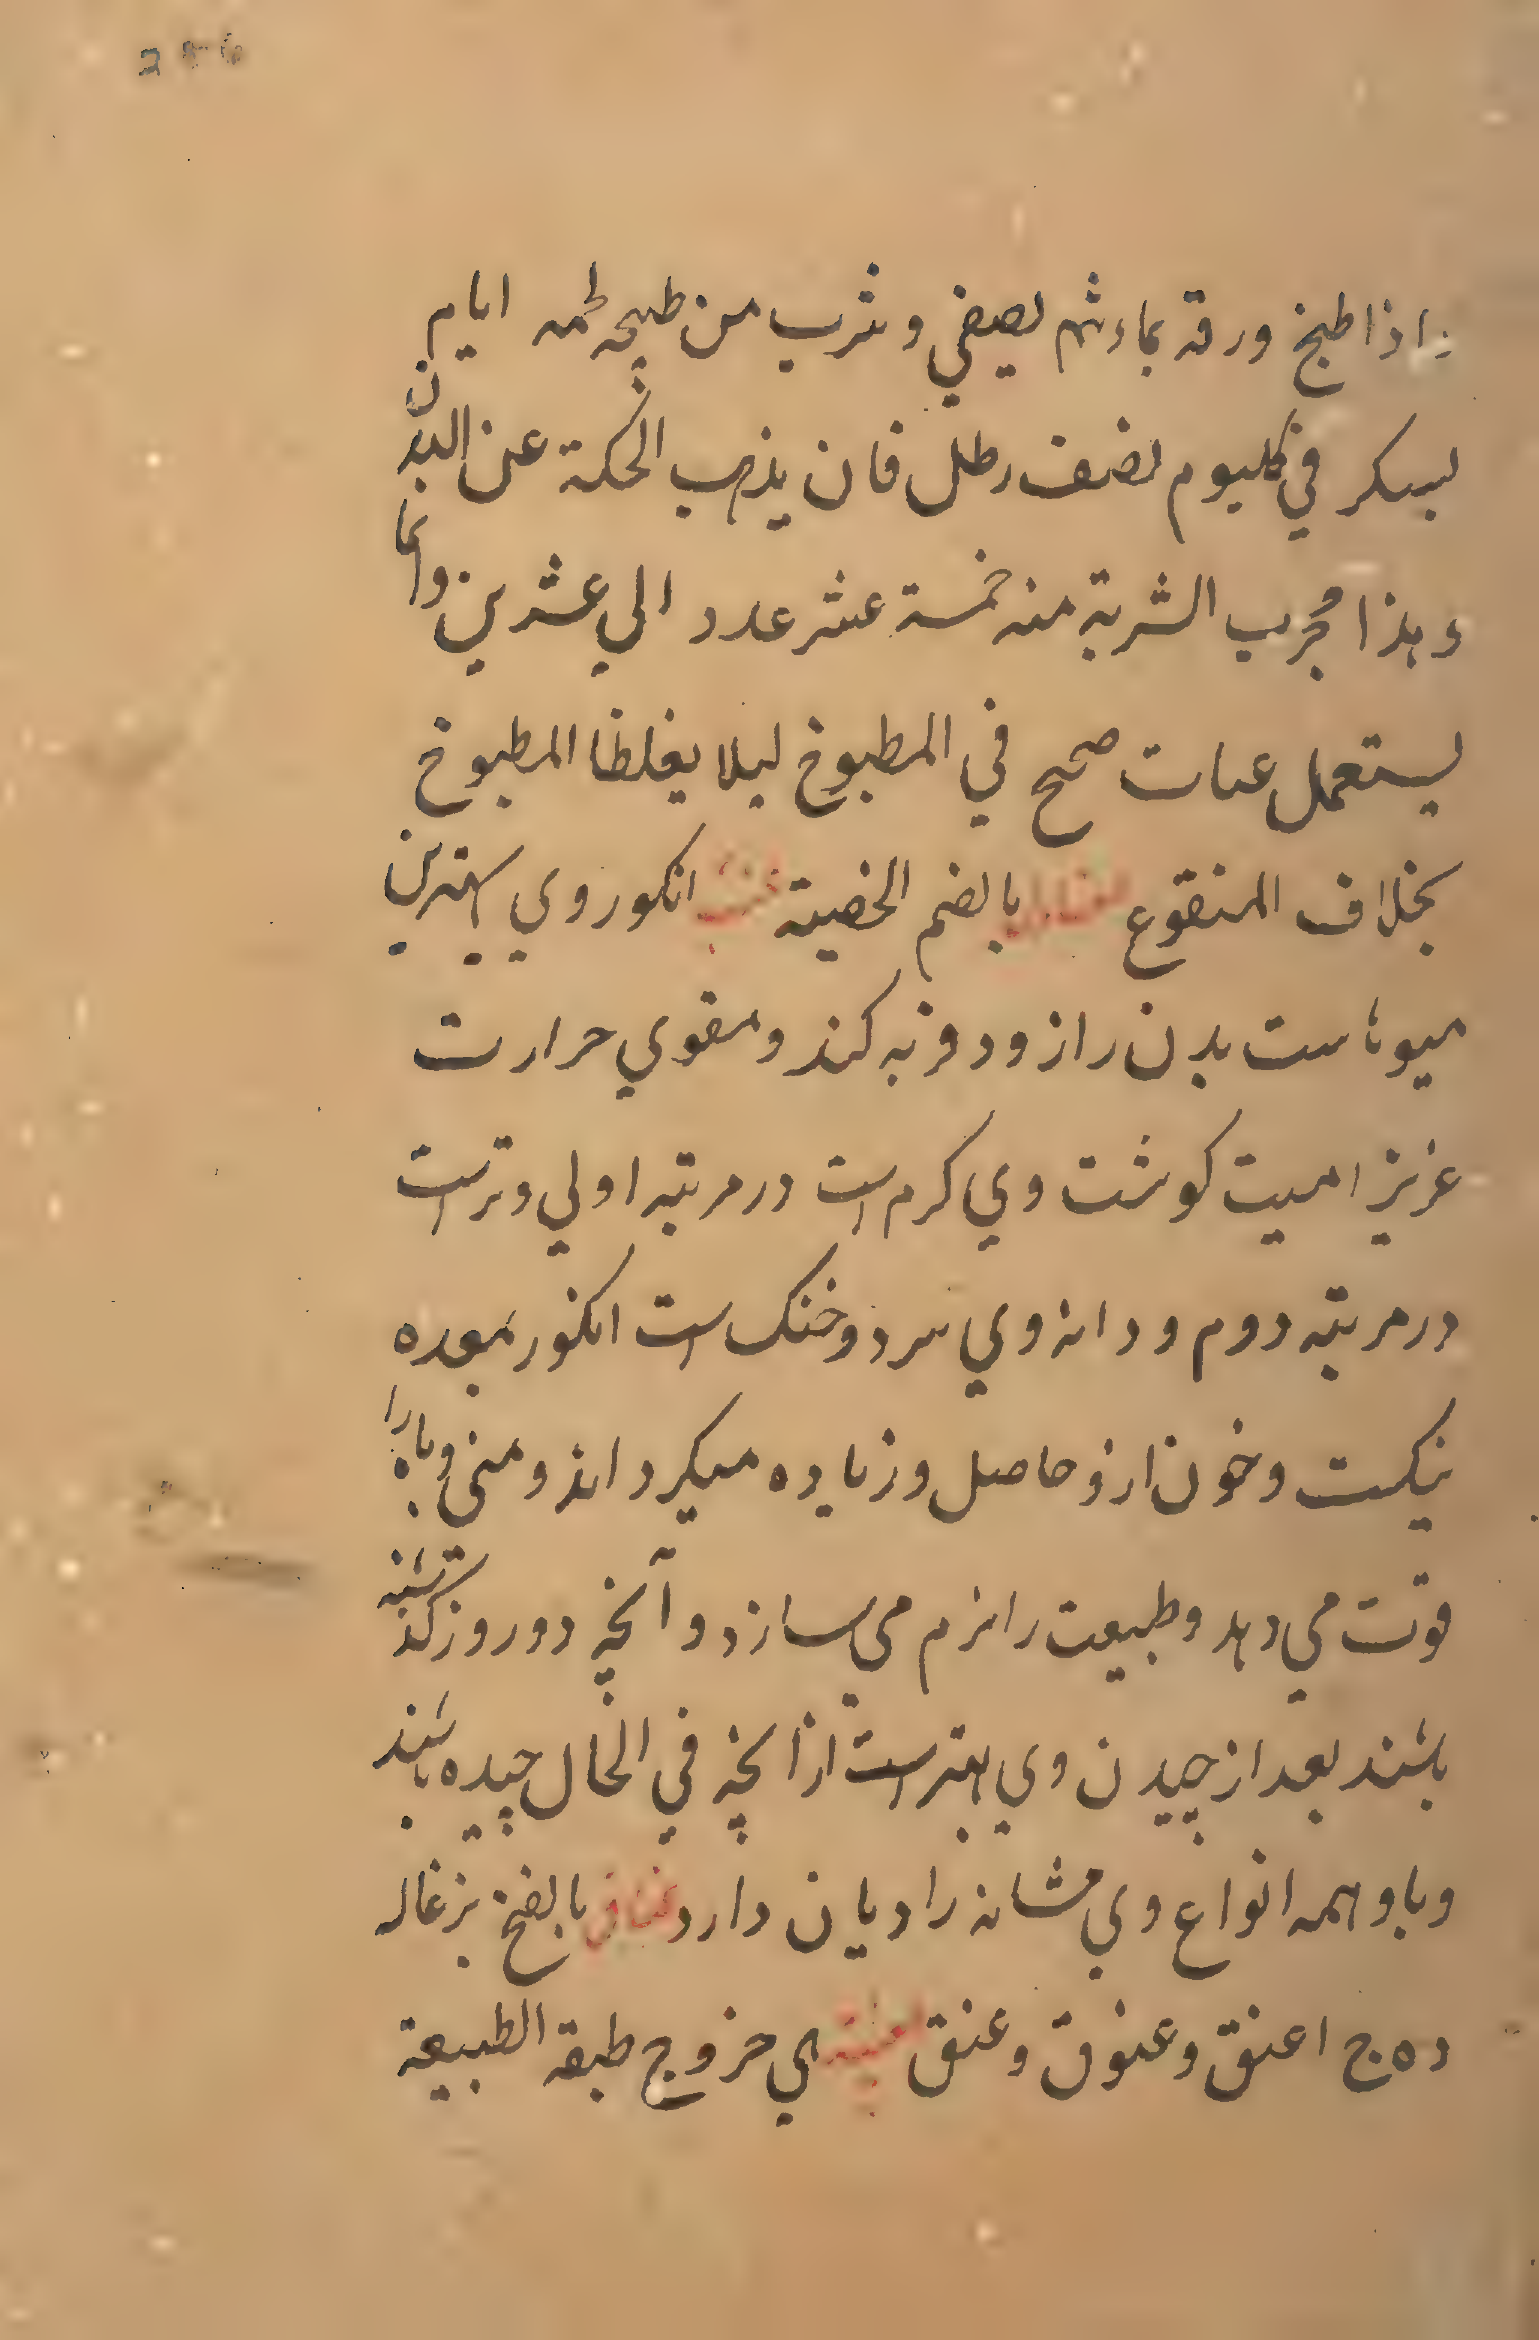 اذا طبخ ورقه بماء ثم يصفي و شرب من طبيخه خمسه ايام
بسكر في كليوم نصف رطل فان يذهب الحكة عن البدن
و هذا مجرب الشربة منه خمسة عشر عدد الي عشرين وانما
يستعمل عناب صحيح في المطبوخ ليلا يغلظا المطبوخ
بخلاف المنقوع بالضم الخصية عنب انكور وي بهترين
ميوهاست بدن را زود فربه كند و مقوي حرارت
عزيز اميت كوشت وي كرم است در مرتبه اولي و تر است
در مرتبه دوم و دانه وي سرد و خشك است انكور بمعده
نيكست و خون ازو حاصل و زياده ميكرداند و مني و باه را
قوت مي دهد و طبيعت را نرم مي سازد و آنچه دو روز كذشته
باشند بعد از چيدن وي بهتر است از آنچه في الحال چيده باشند
و با وهمه انواع وي مثانه را ديان دارد عناق بالفتح بزغاله
ده ج اعنق و عنوق و عنق عنبيه اي خروج طبقه الطبيعة